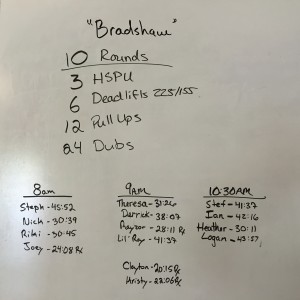 "Bradshaw"
10 Rounds
3 HSPU
6 Deadlifts 225/155
12 Pull Ups
24 Dubs
8am
Steph - 45:52
Nich - 30:39
Riki - 30:45
Joey - 24:08 Rx
9AM
Theresa - 31:26
Derrick - 38:07
Rayzor - 28:11 Rx
Lil' Roy - 41:37
Clayton - 20:15 Rx
Kristy - 22:06 Rx
10:30AM
Stef - 41:37
Ian - 42:16
Heather - 30:11
Logan - 43:57